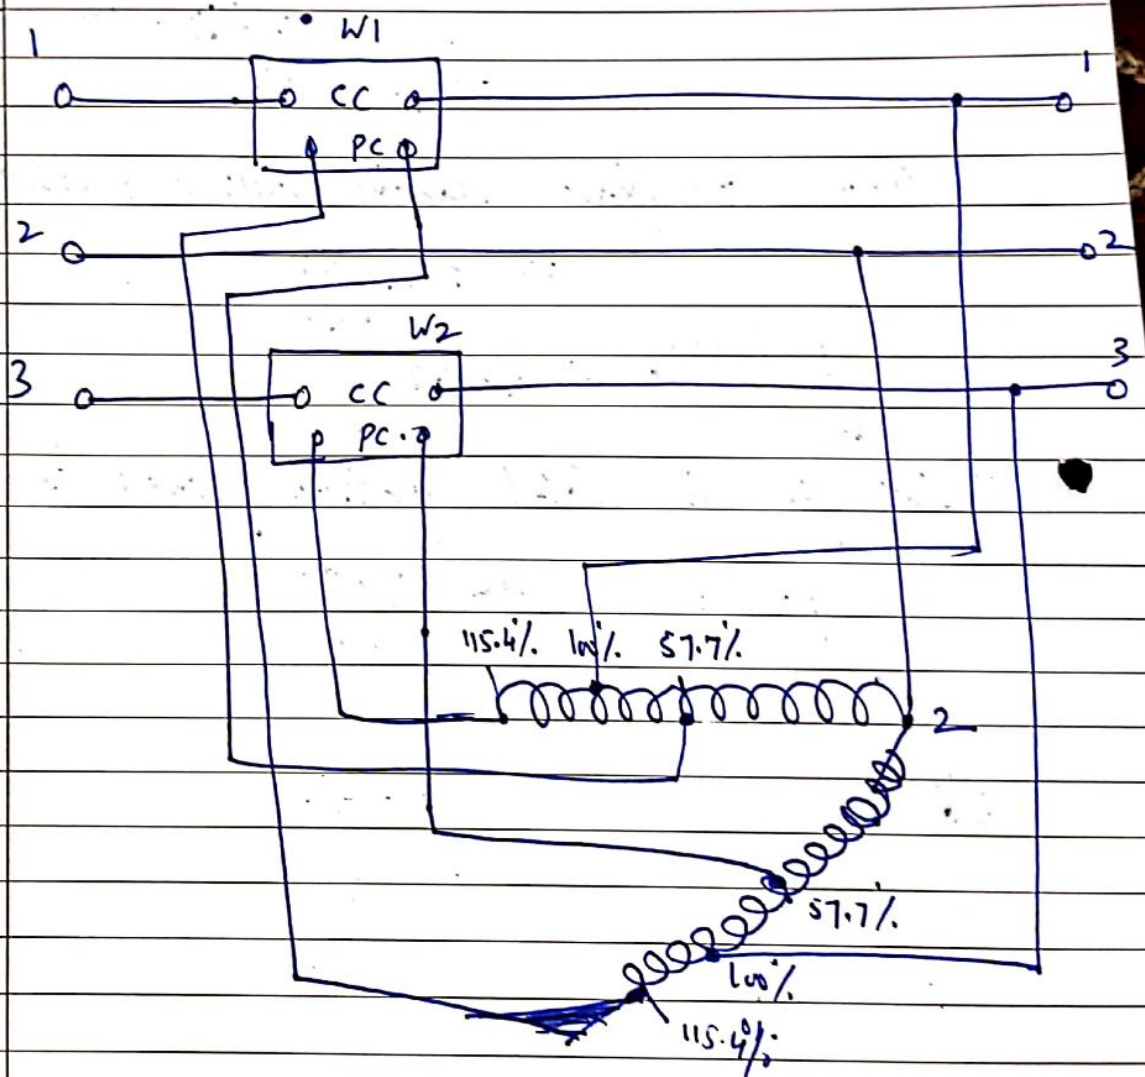 W1
1
CC
1
PC
2
2
W2
3
CC
3
PC
115.4% 100% 57.7%
2
57.7%
100%
115.4%